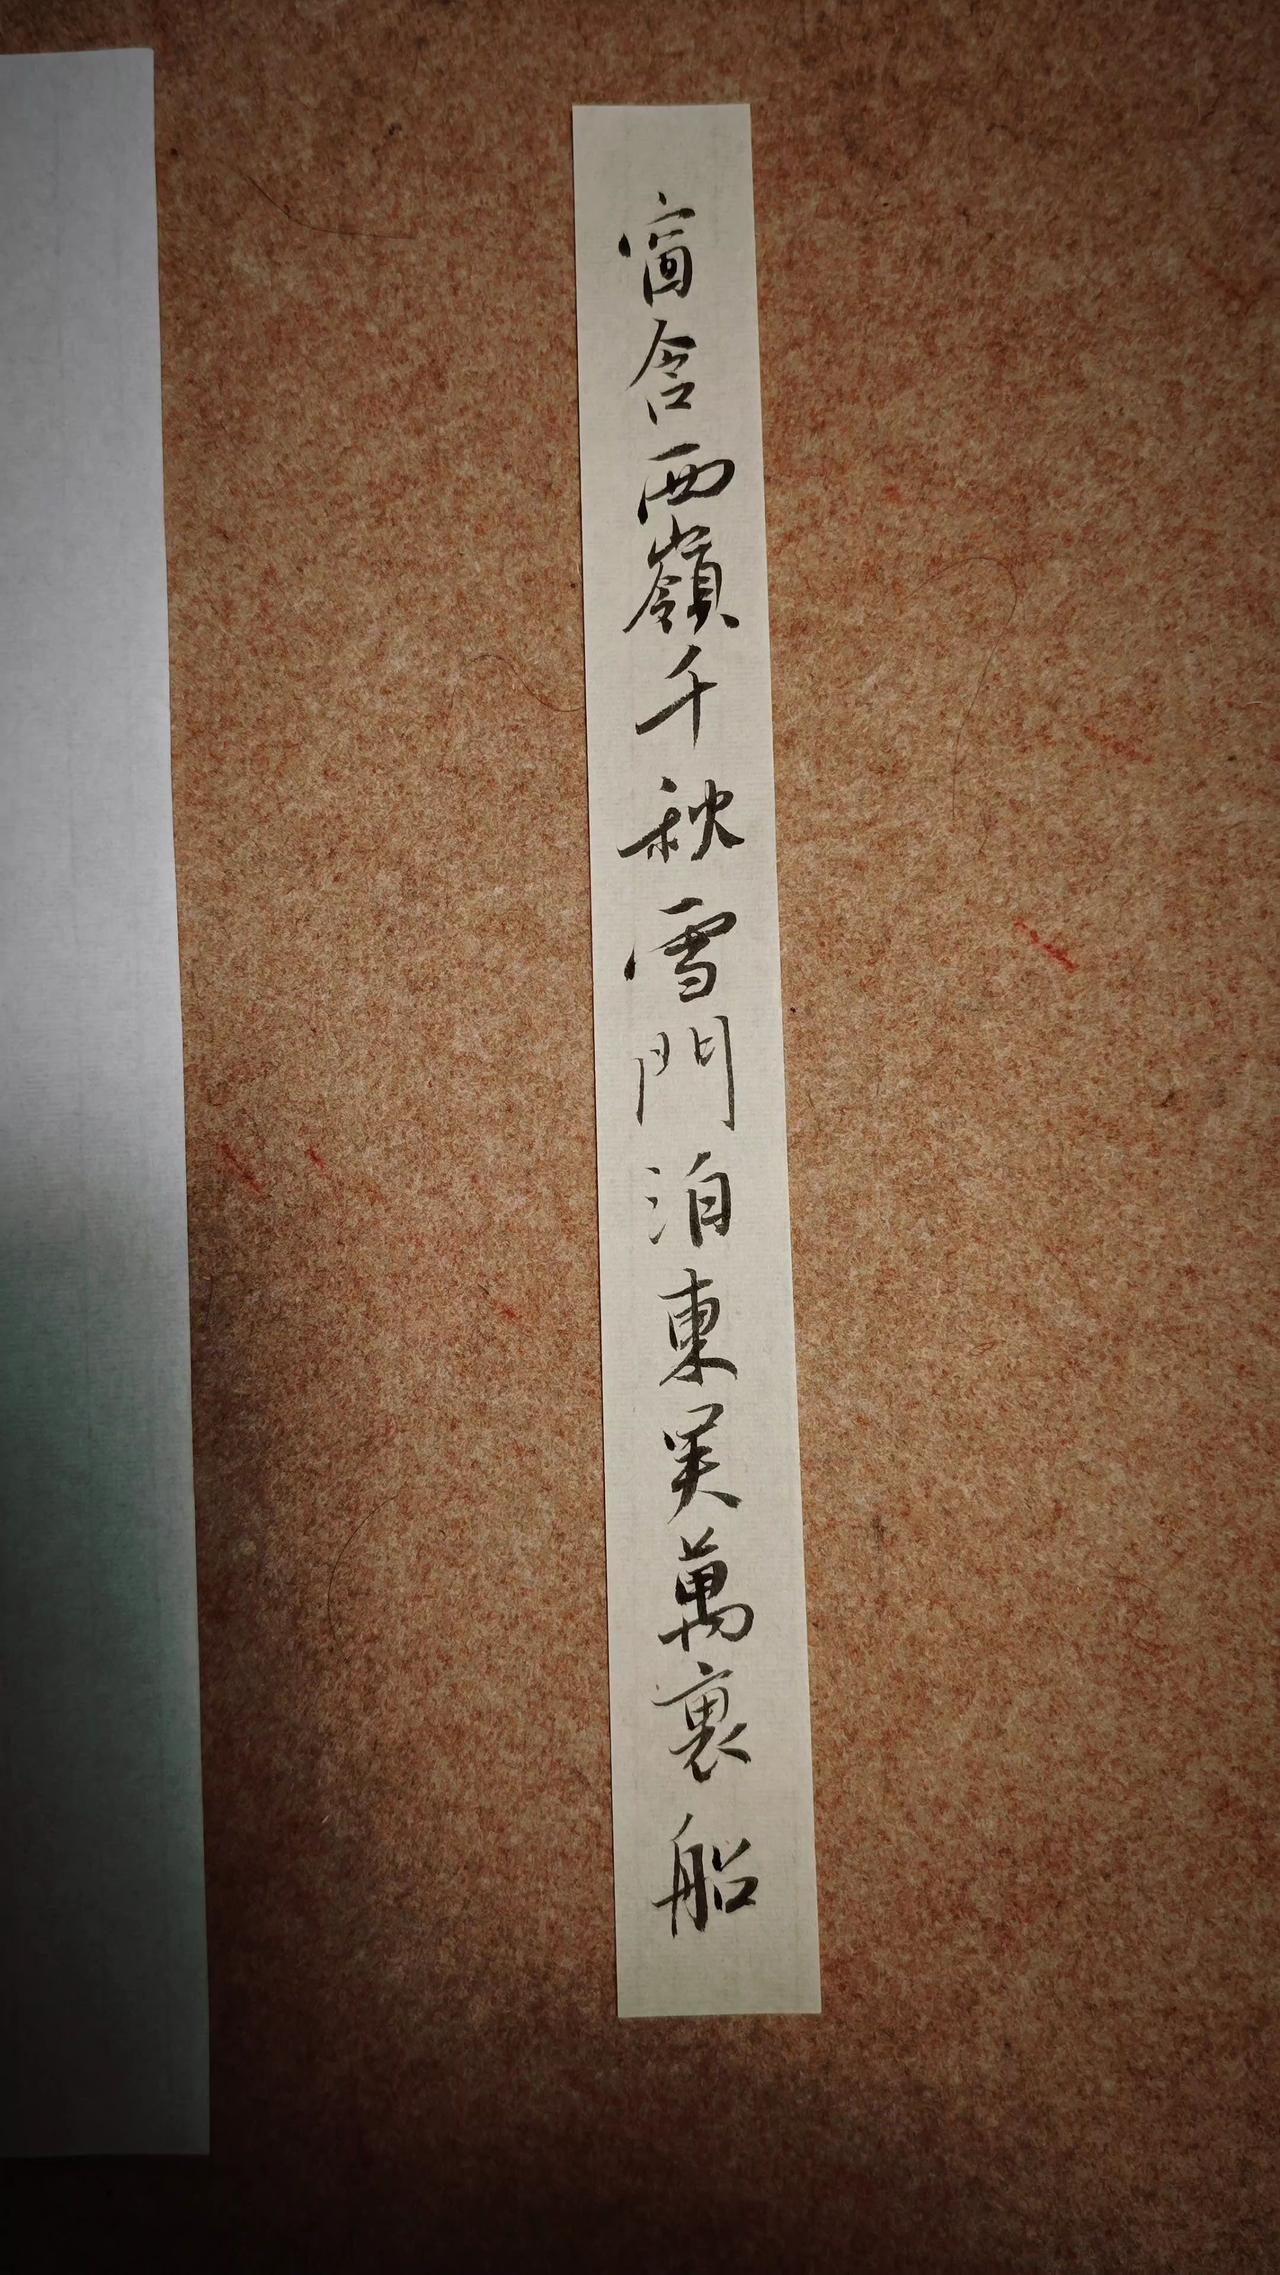 窗含西嶺千秋雪門泊東吴萬裏船